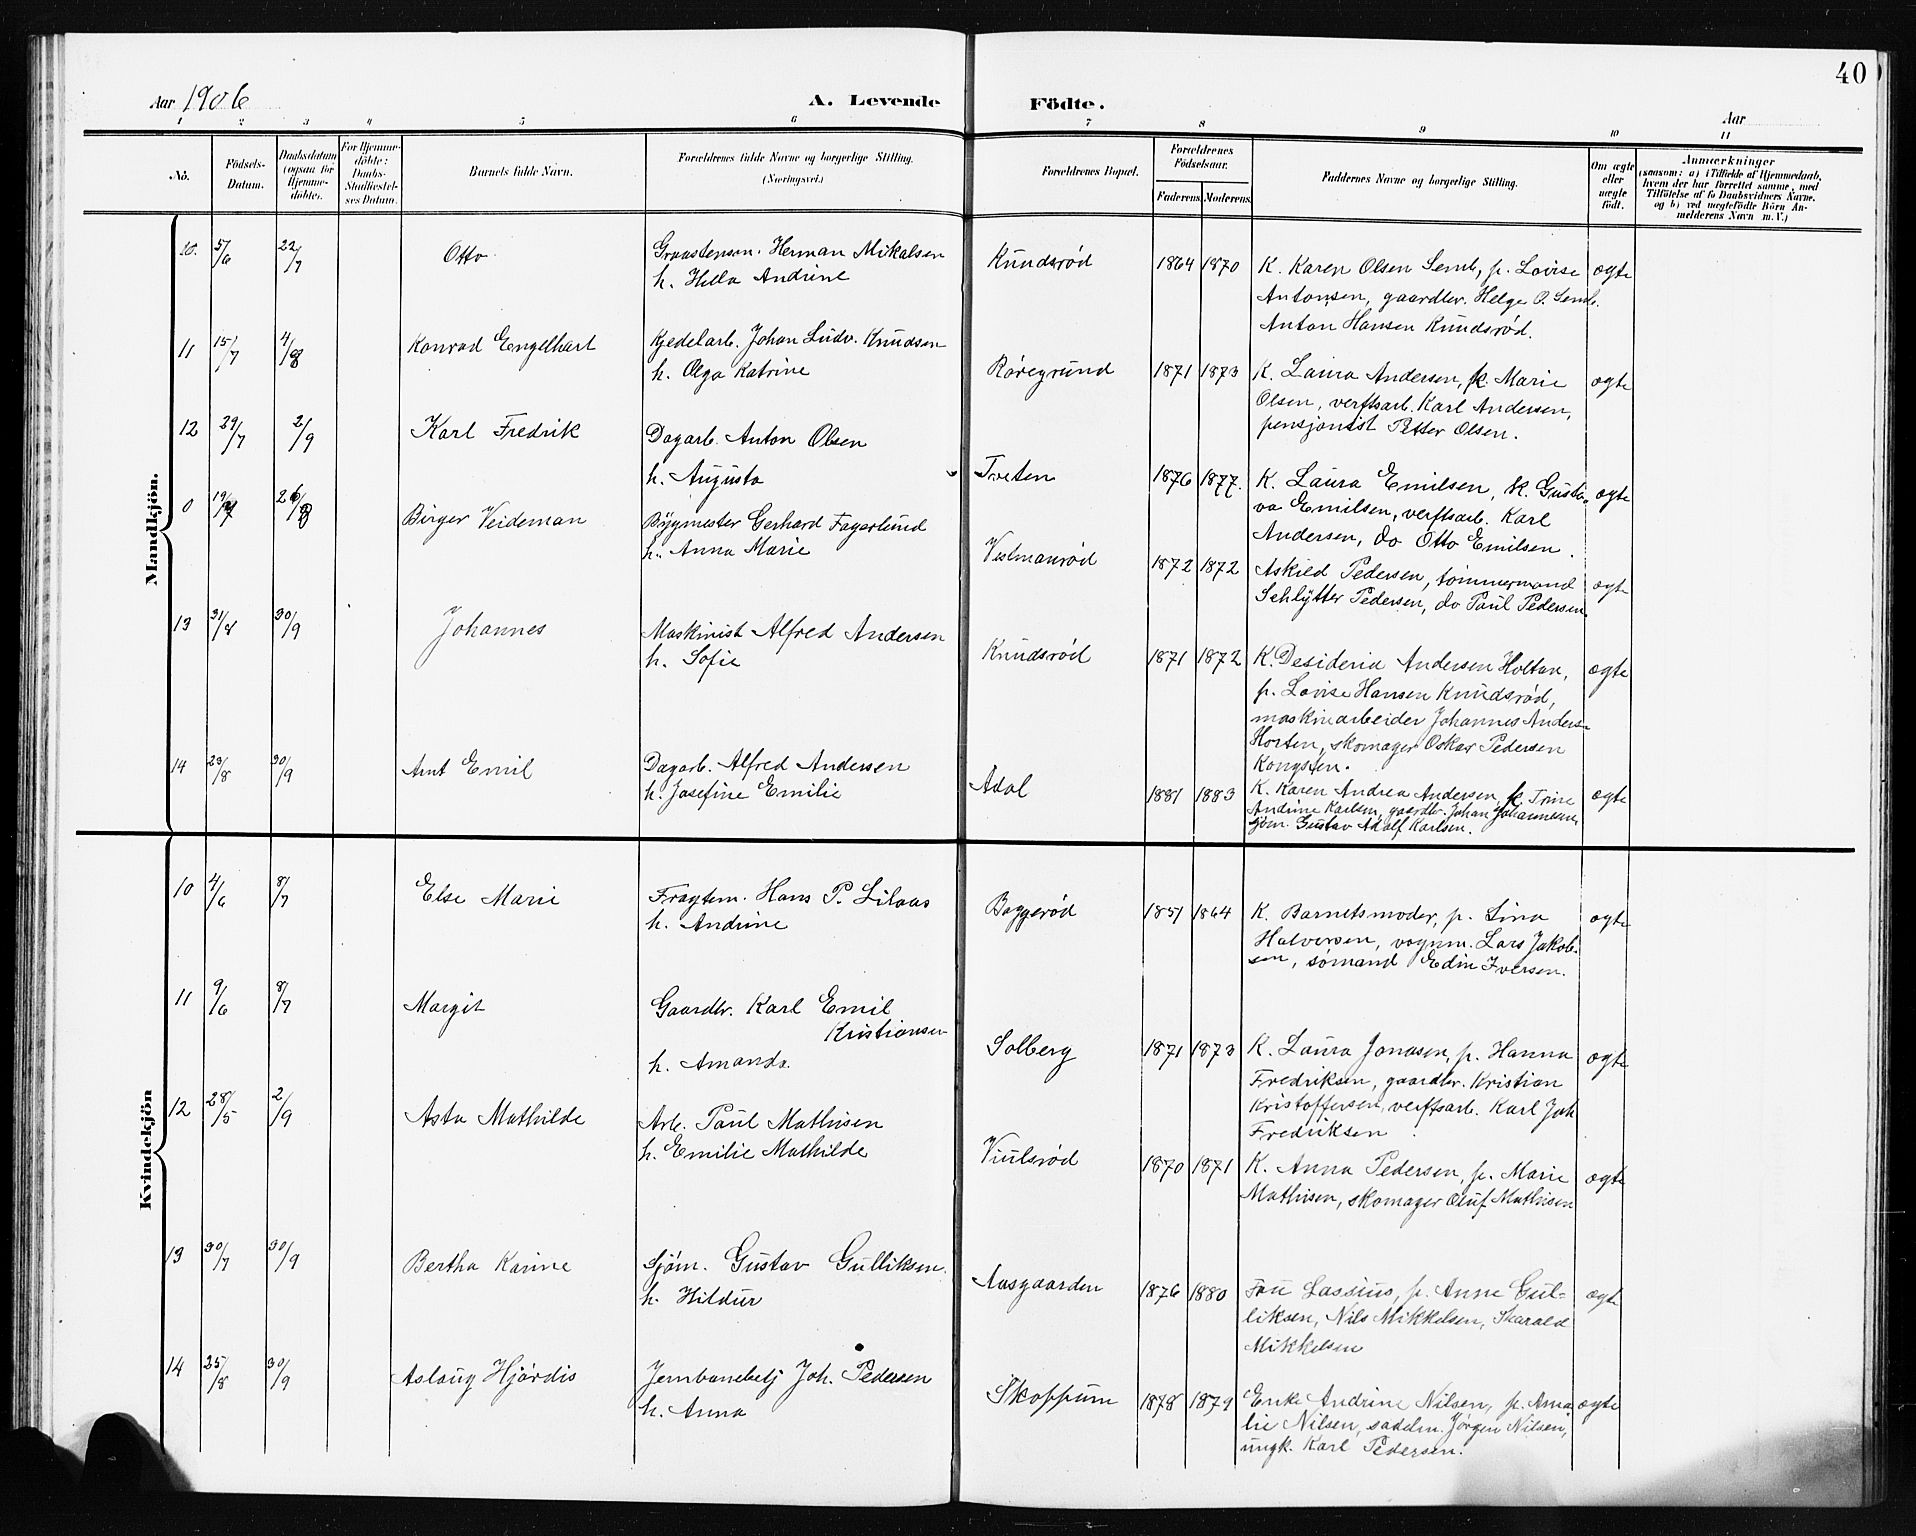 40
Aar 1906
A. Levende Födte.
Aar
1 2 3 4 5 6 7 8 9 10 11
No.
Födsels-
Datum.
Daabsdatum
(ogsaa for
Hjemme-
döbte).
For Hjemme-
döbte:
Daabs-
Stadfæstel-
ses Datum.
Barnets fulde Navn.
Forældrenes fulde Navne og borgerlige Stilling.
(Næringsvei.)
Forældrenes Bopæl.
Forældrenes
Födselsaar.
Faderens Moderens
Faddernes Navne og borgerlige Stilling.
Om ægte
eller
uægte
födt.
Anmærkninger
(saasom: a) i Tilfælde af Hjemmedaab,
hvem der har forrettet samme, med
Tilföielse af to Daabsvidners Navne.
og b) ved uægtefödte Börn An-
melderens Navn m. V.)
Mandkjön.
10. 5/6 22/7 Otto Graastensm. Herman Mikalsen
h. Hella Andrine
Knudsrød 1864 1870 K. Karen Olsen Semb, p. Lovise ægte
Antonsen, gaardbr. Helge O. Semb.
Anton Hansen Knudsrød.
11 15/7 4/8 Konrad Engelhart Kjedelarb. Johan Ludv. Knudsen
h. Olga Katrine
Røregrund 1871 1873 K. Laura Andersen, k. Marie ægte
Olsen, verftsarb. Karl Andersen,
pensjonist Petter Olsen.
12 29/7 2/9 Karl Fredrik Dagarb. Anton Olsen
h. Augusta
Tveten 1876 1877. K. Laura Emilsen, k. Gusta- ægte
va Emilsen, verftsarb. Karl
Andersen, do Otto Emilsen.
0 19/7 26/8 Birger Veideman Bygmester Gerhard Fagerlund
h. Anna Marie
Vestmanrød 1872 1872 Askild Pedersen, tømmermand ægte
Schlytter Pedersen, do Paul Pedersen.
13 31/8 30/9 Johannes Maskinist Alfred Andersen
h. Sofie
Knudsrød 1871 1872 K. Desideria Andersen Holtan, ægte
p. Lovise Hansen Knudsrød,
maskinarbeider Johannes Anders-
Horten, skomager Oskar Pedersen
Kongsten.
14 23/8 30/9 Arnt Emil Dagarb. Alfred Andersen
h. Josefine Emilie
Adal 1881 1883 K. Karen Andrea Andersen, k. Trine ægte
Andrine Karlsen, gaardbr. Johan Johannesen,
sjøm. Gustav Adolf Karlsen.
Kvindekjön
10 4/6 8/7 Else Marie Fragtem. Hans P. Lilaas
h. Andrine
Baggerød 1851 1864 K. Barnetsmoder, p. Lina ægte
Halversen, vognm. Lars Jakob-
sen, sømand Edin Iversen.
11 9/6 8/7 Margit Gaardbr. Karl Emil
Kristiansen
h. Amanda.
Solberg 1871 1873 K. Laura Jonasen, p. Hanna ægte
Fredriksen, gaardbr. Kristian
Kristoffersen, verftsarb. Karl Joh
Fredriksen.
12 28/5 2/9 Asta Mathilde Arb. Paul Mathisen
h. Emilie Mathilde
Viulsrød 1870 1871 K. Anna Pedersen, p. Marie ægte
Mathisen, skomager Oluf Mathisen
13 30/7 30/9 Bertha Karine Sjøm. Gustav Gulliksen.
h. Hildur
Aasgaarden 1876 1880 Fru Lassius, p. Anne Gul- ægte
liksen, Nils Mikkelsen, Harald
Mikkelsen
14 25/8 30/9 Aslaug Hjørdis Jernbanebetj Joh. Pedersen
h. Anna
Skoppum 1878 1879 Enke Andrine Nilsen, p. Ama ægte
lie Nilsen, saddm. Jørgen Nilsen,
ungk. Karl Pedersen.